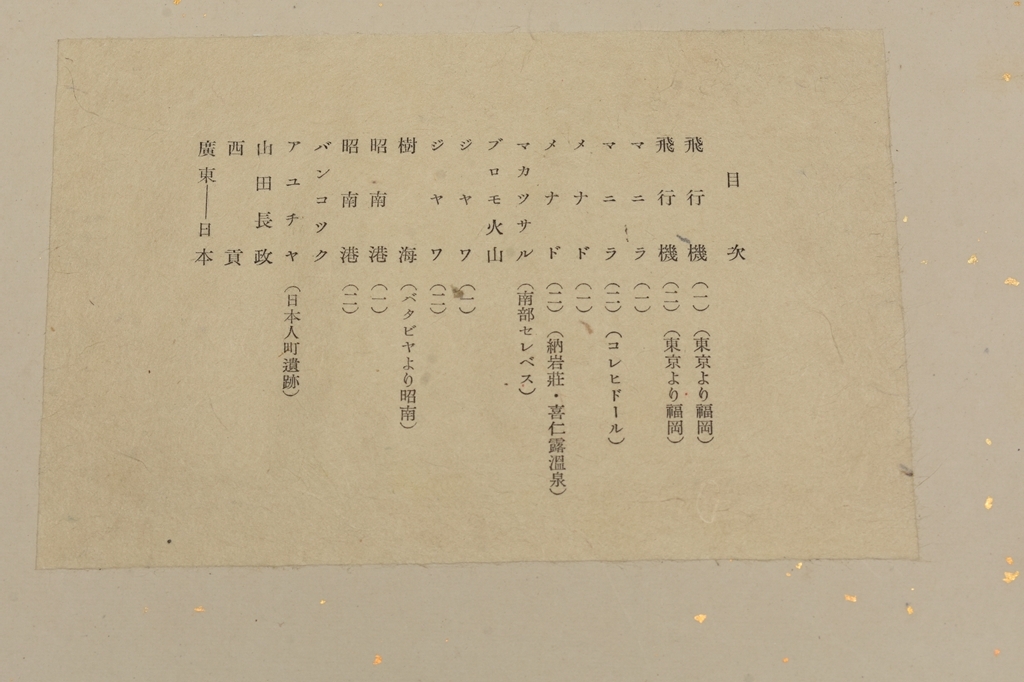 目次
飛行機(一)(東京より福岡)
飛行機(二)(東京より福岡)
マニラ(一)
マニラ(二)(コレヒドール)
メナド(一)
メナド(二)(納岩莊・喜仁露溫泉)
マカツサル(南部セレベス)
ブロモ火山
ジャワ(一)
ジャワ(二)
樹海(バタビヤより昭南)
昭南港(一)
昭南港(二)
バンコツク
アユチヤ(日本人町遺跡)
山田長政
西貢
廣東―日本